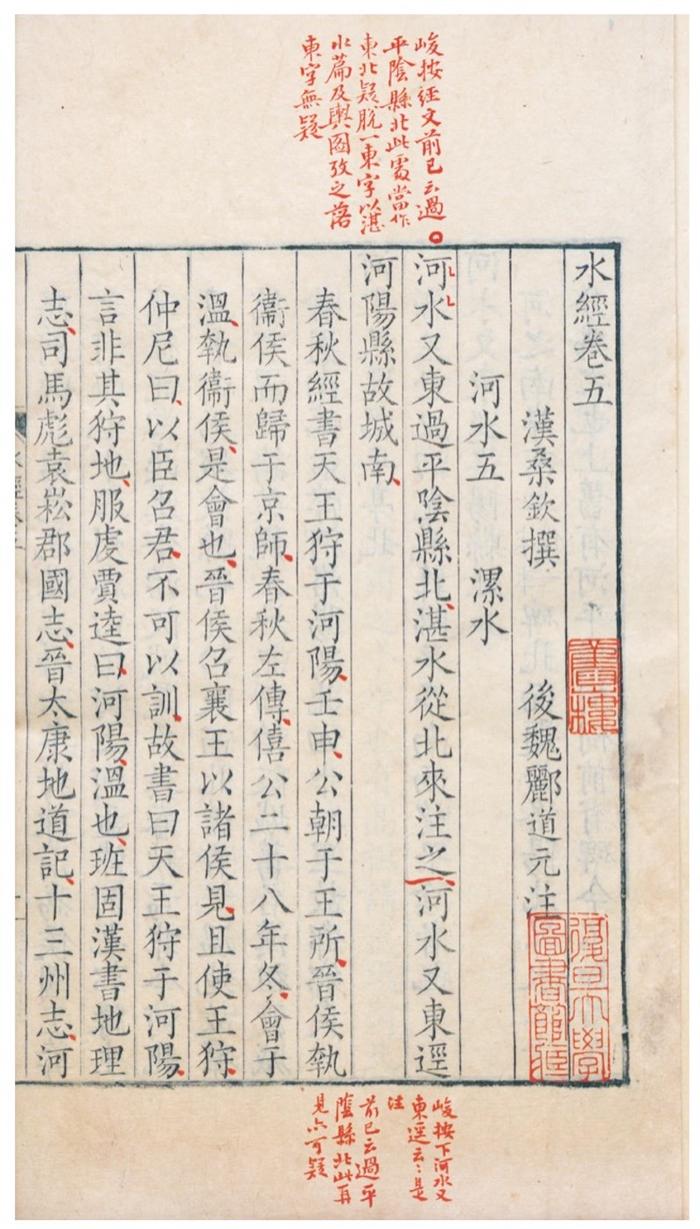 峻按經文前已云過
平陰縣北此處當作
東北疑脫一東字以湛
水篇及輿圖攷之落
東字無疑
水經卷五
漢桑欽撰 後魏酈道元注
河水五 漯水
河水又東過平陰縣北湛水從北來注之河水又東逕
河陽縣故城南
春秋經書天王狩于河陽壬申公朝于王所晉侯執
衞侯而歸于京師春秋左傳僖公二十八年冬會于
溫執衞侯是會也晉侯召襄王以諸侯見且使王狩
仲尼曰以臣召君不可以訓故書曰天王狩于河陽
言非其狩地服虔賈逵曰河陽溫也班固漢書地理
志司馬彪袁崧郡國志晉太康地道記十三州志河
復旦大學
圖書館藏
峻按下河水又
東逕云〻是
注
前已云過平
陰縣北此再
見亦可疑